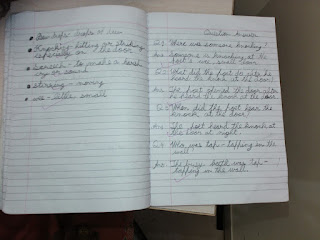 Dew drops - drops of dew
Knocking - hitting or striking
especially on the door
Screech - to make a harsh
cry or sound
Stirring - moving
wee - little small
Question Answer
Q.1 Where was someone knocking?
Ans Someone is knocking at the
poet's wee, small door.
Q.2 What did the poet do after he
heard the knock at the door?
Ans The poet opened the door after
he heard the knock at the door
Q.3 When did the poet hear the
knock at the door?
Ans The poet heard the knock at
the door at night.
Q.4 Who was tap-tapping in the
wall?
Ans The busy beetle was tap-
tapping in the wall.